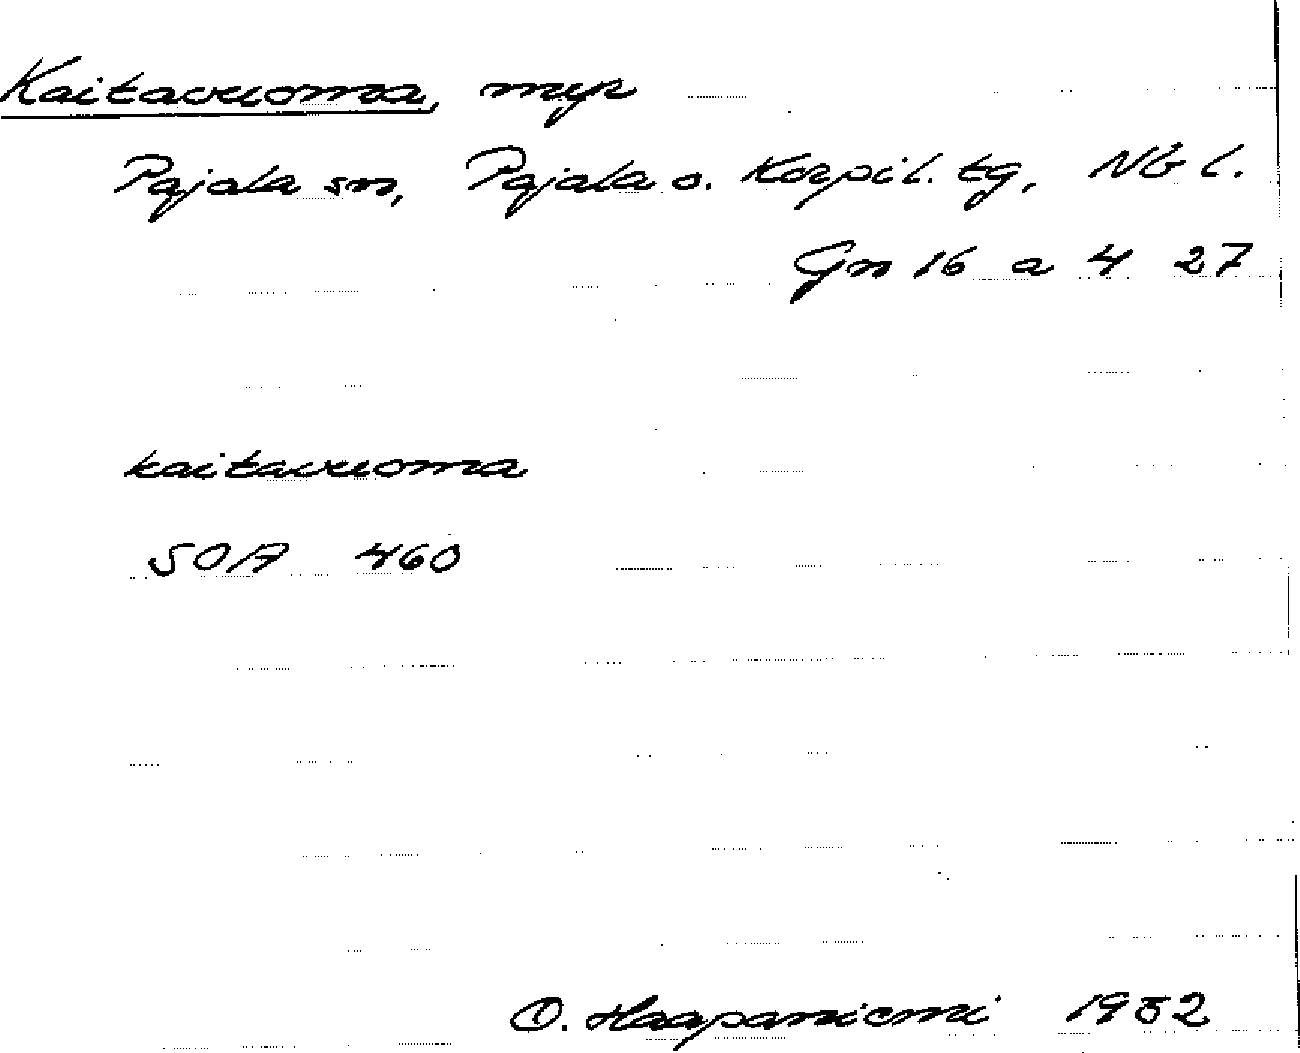 Kaitavuoma, myr
Pajala sn, Pajala o. Korpil. tg, NB l.
Gn 16 a 4 27
kaitavuoma
SOA 460
O. Haapaniemi 1952